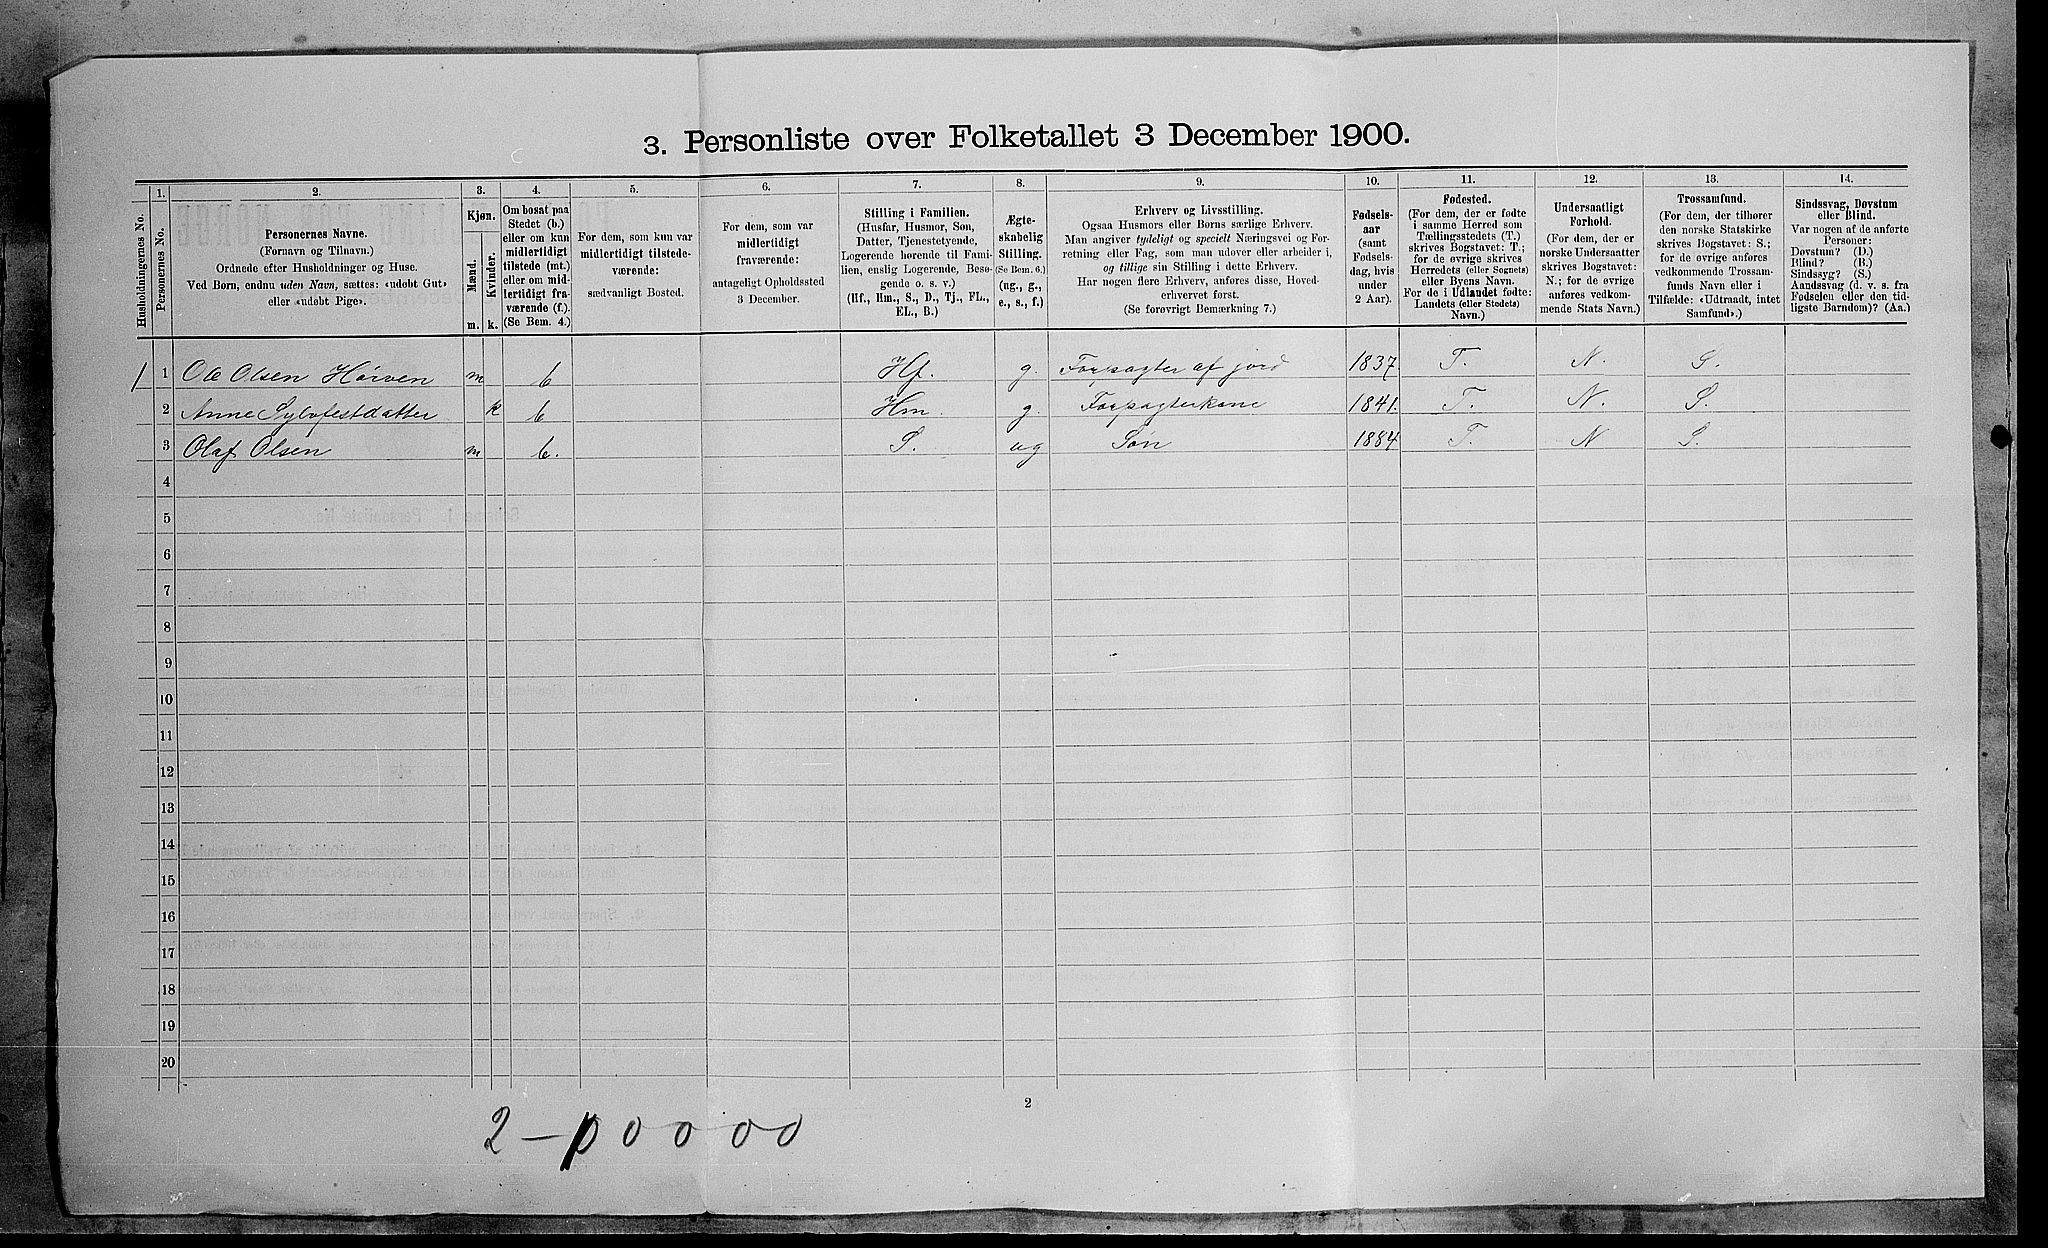 3. Personliste over Folketallet 3 December 1900.
1. 2. 3. 4. 5. 6. 7. 8. 9. 10. 11. 12. 13. 14.
Husholdningernes No.
Personernes No.
Personernes Navne.
(Fornavn og Tilnavn.)
Ordnede efter Husholdninger og Huse.
Ved Børn, endnu uden Navn, sættes: «udøbt Gut»
eller «udøbt Pige».
Kjøn.
Mænd.
Kvinder.
m. k.
Om bosat paa
Stedet (b.)
eller om kun
midlertidigt
tilstede (mt.)
eller om mid-
lertidigt fra-
værende (f.).
(Se Bem. 4.)
For dem, som kun var
midlertidigt tilstede-
værende:
sædvanligt Bosted.
For dem, som var
midlertidigt
fraværende:
antageligt Opholdssted
3 December.
Stilling i Familien.
(Husfar, Husmor, Søn,
Datter, Tjenestetyende,
Logerende hørende til Fami-
lien, enslig Logerende, Besø-
gende o. s. v.)
(Hf., Hm., S., D., Tj., FL.,
EL., B.)
Ægte-
skabelig
Stilling.
(Se Bem. 6.)
(ug., g.,
e., s., f.)
Erhverv og Livsstilling.
Ogsaa Husmors eller Børns særlige Erhverv.
Man angiver tydeligt og specielt Næringsvei og For-
retning eller Fag, som man udøver eller arbeider i,
og tillige sin Stilling i dette Erhverv.
Har nogen flere Erhverv, anføres disse, Hoved-
erhvervet først.
(Se forøvrigt Bemærkning 7.)
Fødsels-
aar
(samt
Fødsels-
dag, hvis
under
2 Aar).
Fødested.
(For dem, der er fødte
i samme Herred som
Tællingsstedets (T.)
skrives Bogstavet: T.;
for de øvrige skrives
Herredets (eller Sognets)
eller Byens Navn.
For de i Udlandet fødte:
Landets (eller Stedets)
Navn.)
Undersaatligt
Forhold.
(For dem, der er
norske Undersaatter
skrives Bogstavet:
N.; for de øvrige
anføres vedkom-
mende Stats Navn.)
Trossamfund.
(For dem, der tilhører
den norske Statskirke
skrives Bogstavet: S.;
for de øvrige anføres
vedkommende Trossam-
funds Navn eller i
Tilfælde: «Udtraadt, intet
Samfund».)
Sindssvag, Døvstum
eller Blind.
Var nogen af de anførte
Personer:
Døvstum? (D.)
Blind? (B.)
Sindssyg? (S.)
Aandssvag (d. v. s. fra
Fødselen eller den tid-
ligste Barndom)? (Aa.)
1 1 Ole Olsen Hørven m b Hf. g. Forpagter af jord 1837. T. N. S.
2 Anne Sylvfestdatter k b Hm. g. Forpagterkone 1841. T. N. S.
3 Olaf Olsen m b. S. ug Søn 1884 T. N S.
4
5
6
7
8
9
10
11
12
13
14
15
16
17
18
19
20
2
2 – 10 0 0 0 0